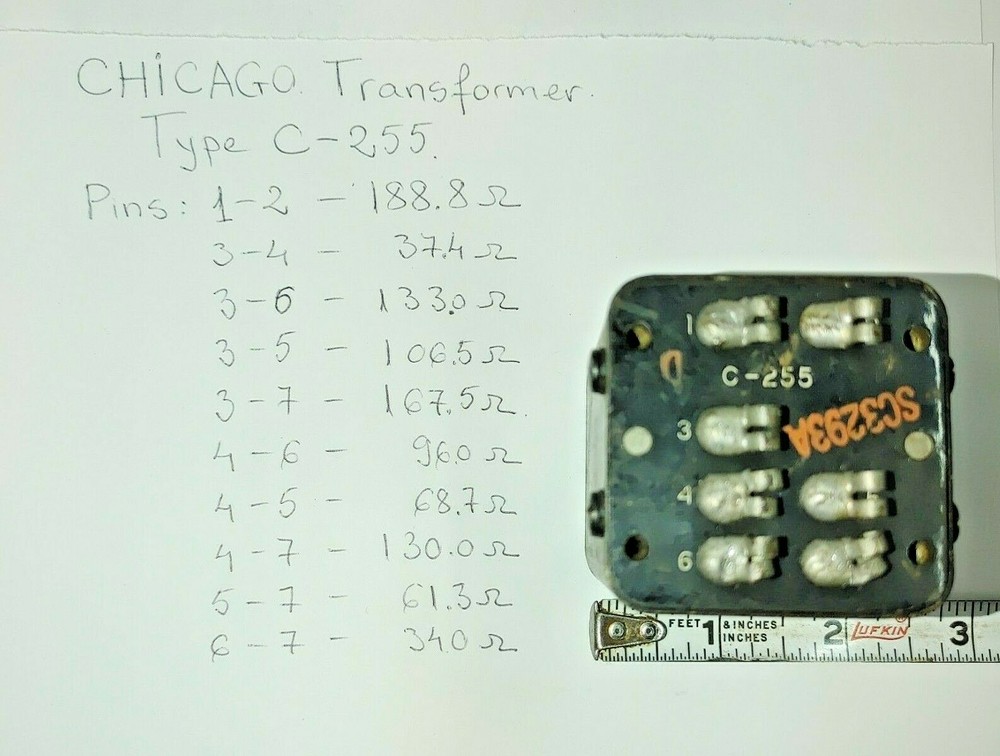 CHICAGO Transformer.
Type C-255.
Pins: 1-2 - 188.8 Ω
3-4 - 37.4 Ω
3-6 - 133.0 Ω
3-5 - 106.5 Ω
3-7 - 167.5 Ω.
4-6 - 96.0 Ω
4-5 - 68.7 Ω
4-7 - 130.0 Ω
5-7 - 61.3 Ω
6-7 - 34.0 Ω
1
D
C-255
3
SC3293A
4
6
FEET 1 8 INCHES
INCHES
2 LUFKIN 3